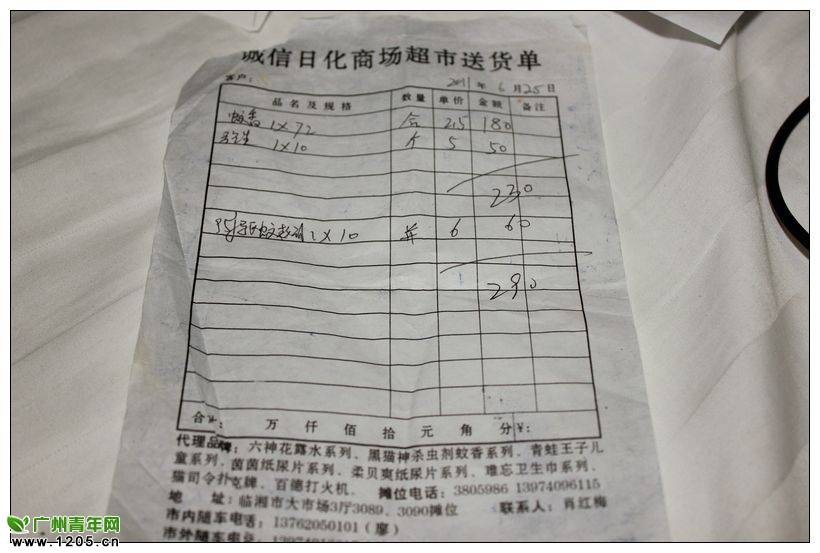 诚信日化商场超市送货单
客户： 2011 年 6 月 25 日
品名及规格 数量 单价 金额 备注
蚊香 1×72 合 2.5 180
1×10 个 5 50
230
1×10 并 6 60
290
合计： 万 仟 佰 拾 元 角 分¥：
代理品牌：六神花露水系列、黑猫神杀虫剂蚊香系列、青蛙王子儿
童系列、茵茵纸尿片系列、柔贝爽纸尿片系列、难忘卫生巾系列、
猫司令扑克牌、百德打火机。 摊位电话：3805986 13974096115
地 址：临湘市大市场3厅3089、3090摊位 联系人：肖红梅
市内随车电话：13762050101（廖）
市外随车电话：
广州青年网
www.1205.cn